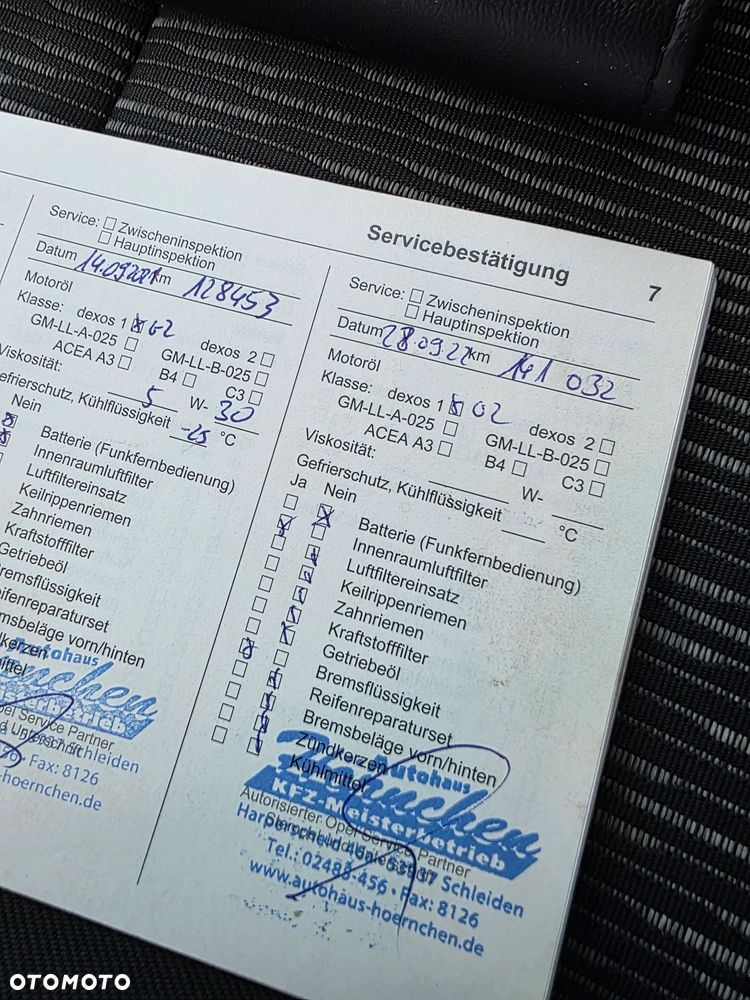 Servicebestätigung 7
Service: Zwischeninspektion
Hauptinspektion
Datum 14.09.2021 km 128453
Motoröl
Klasse: dexos 1 G2 dexos 2
GM-LL-A-025 GM-LL-B-025
ACEA A3 B4 C3
Viskosität: 5 W- 30
Gefrierschutz, Kühlflüssigkeit -25 °C
Nein
Batterie (Funkfernbedienung)
Innenraumluftfilter
Luftfiltereinsatz
Keilrippenriemen
Zahnriemen
Kraftstofffilter
Getriebeöl
Bremsflüssigkeit
Reifenreparaturset
Bremsbeläge vorn/hinten
Zündkerzen
Autohaus
KFZ-Meisterbetrieb
Opel Service Partner
Schleiden
Fax: 8126
-hoernchen.de
Service: Zwischeninspektion
Hauptinspektion
Datum 28.09.22 km 141 032
Motoröl
Klasse: dexos 1 G2 dexos 2
GM-LL-A-025 GM-LL-B-025
ACEA A3 B4 C3
Viskosität: W-
Gefrierschutz, Kühlflüssigkeit °C
Ja Nein
Batterie (Funkfernbedienung)
Innenraumluftfilter
Luftfiltereinsatz
Keilrippenriemen
Zahnriemen
Kraftstofffilter
Getriebeöl
Bremsflüssigkeit
Reifenreparaturset
Bremsbeläge vorn/hinten
Zündkerzen
Kühlmittel
Autohaus
Hörnchen
KFZ-Meisterbetrieb
Autorisierter Opel Service Partner
Schleiden
Tel.: 02488-456 · Fax: 8126
www.autohaus-hoernchen.de
OTOMOTO